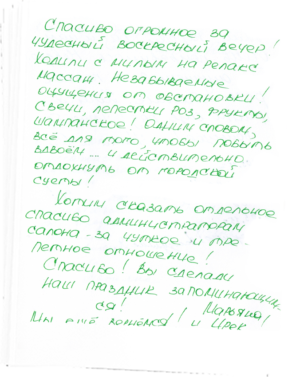 Спасибо огромное за
чудесный воскресный вечер!
Ходили с милым на релакс
массаж. Незабываемые
ощущения от обстановки!
Свечи, лепестки роз, фрукты,
шампанское! Одним словом,
всё для того, чтобы побыть
вдвоём ... и действительно
отдохнуть от городской
суеты!
Хотим сказать отдельное
спасибо администраторам
салона - за чуткое и тре-
петное отношение!
Спасибо! Вы сделали
наш праздник запоминающим-
ся!
Мы ещё вернёмся! Марьяна!
и Ирек